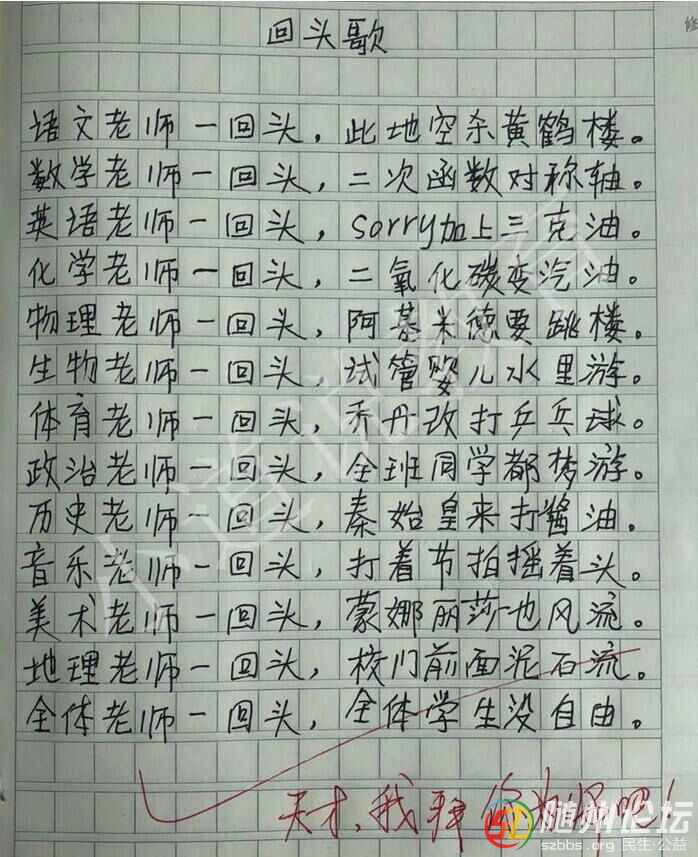 修
回头歌
语文老师一回头，此地空杀黄鹤楼。
数学老师一回头，二次函数对称轴。
英语老师一回头，sorry加上三克油。
化学老师一回头，二氧化碳变汽油。
物理老师一回头，阿基米德要跳楼。
生物老师一回头，试管婴儿水里游。
体育老师一回头，乔丹改打乒乓球。
政治老师一回头，全班同学都梦游。
历史老师一回头，秦始皇来打酱油。
音乐老师一回头，打着节拍摇着头。
美术老师一回头，蒙娜丽莎也风流。
地理老师一回头，校门前面泥石流。
全体老师一回头，全体学生没自由。
天才，我拜你为师吧！
随州论坛
szbbs.org 民生·公益